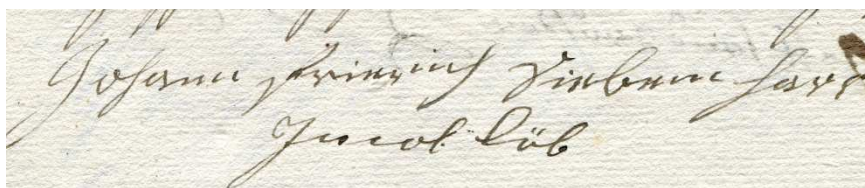 Johann Frierich Siebem har
Jacob Löb